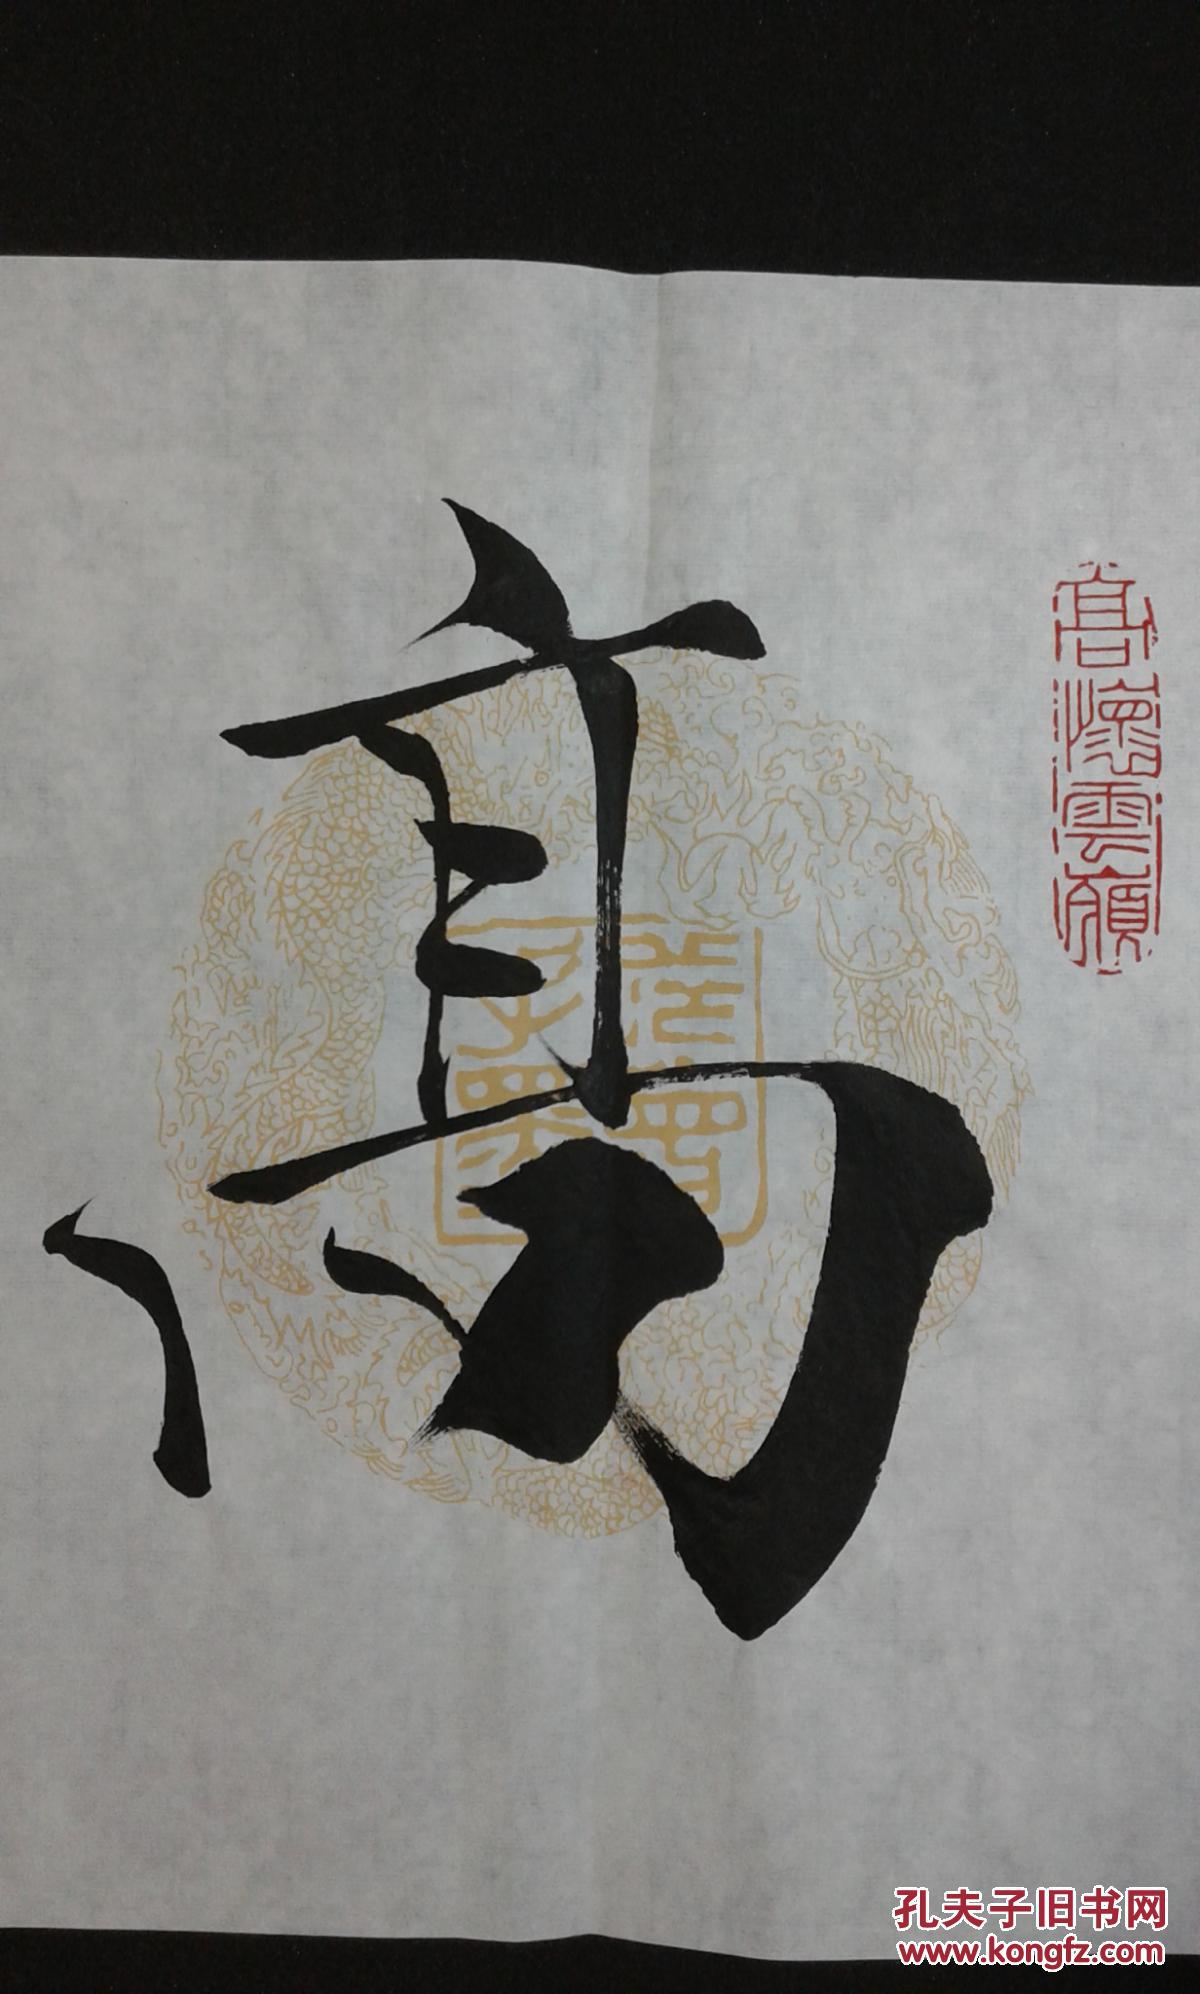 髙
高懷雲嶺
孔夫子旧书网
www.kongfz.com